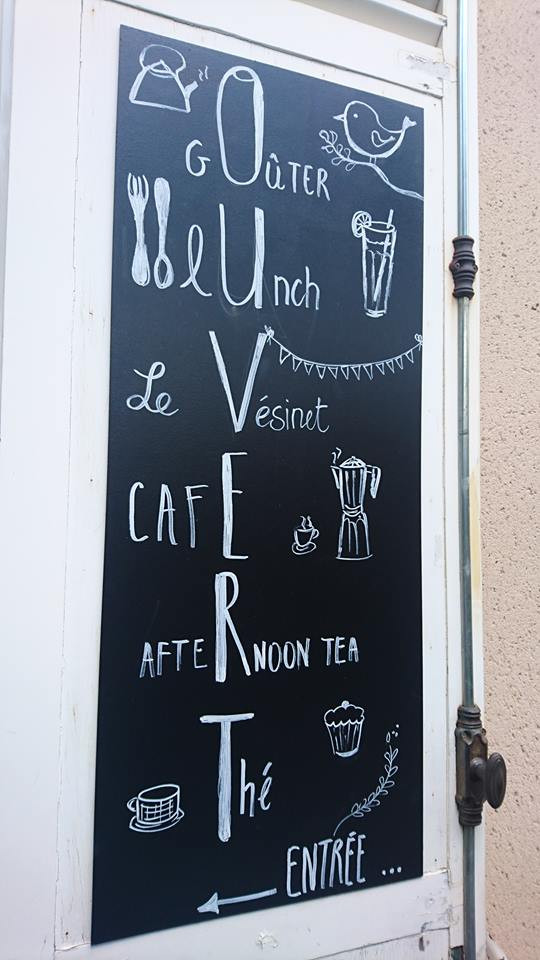 GOÛTER
lUnch
Le Vésinet
CAFE
AFTERNOON TEA
Thé
ENTRÉE ...